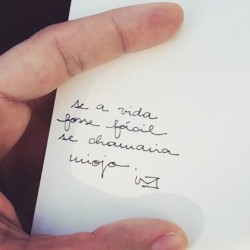 se a vida
fosse fácil
se chamaria
miojo.